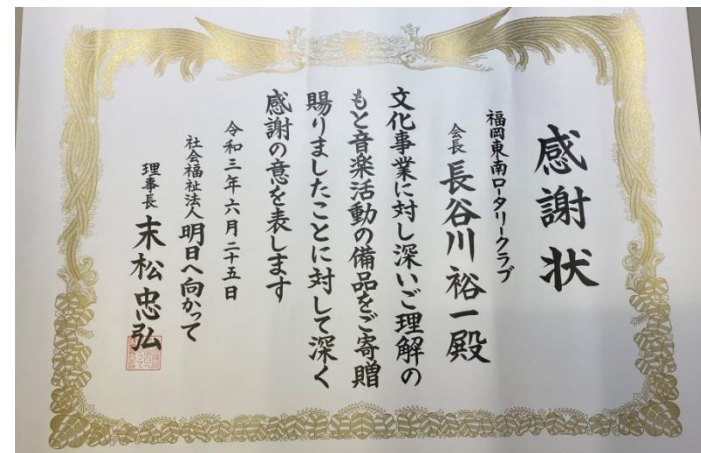 感謝状
福岡東南ロータリークラブ
会長 長谷川裕一殿
文化事業に対し深いご理解の
もと音楽活動の備品をご寄贈
賜りましたことに対して深く
感謝の意を表します
令和三年六月二十五日
社会福祉法人明日へ向かって
理事長 末松忠弘